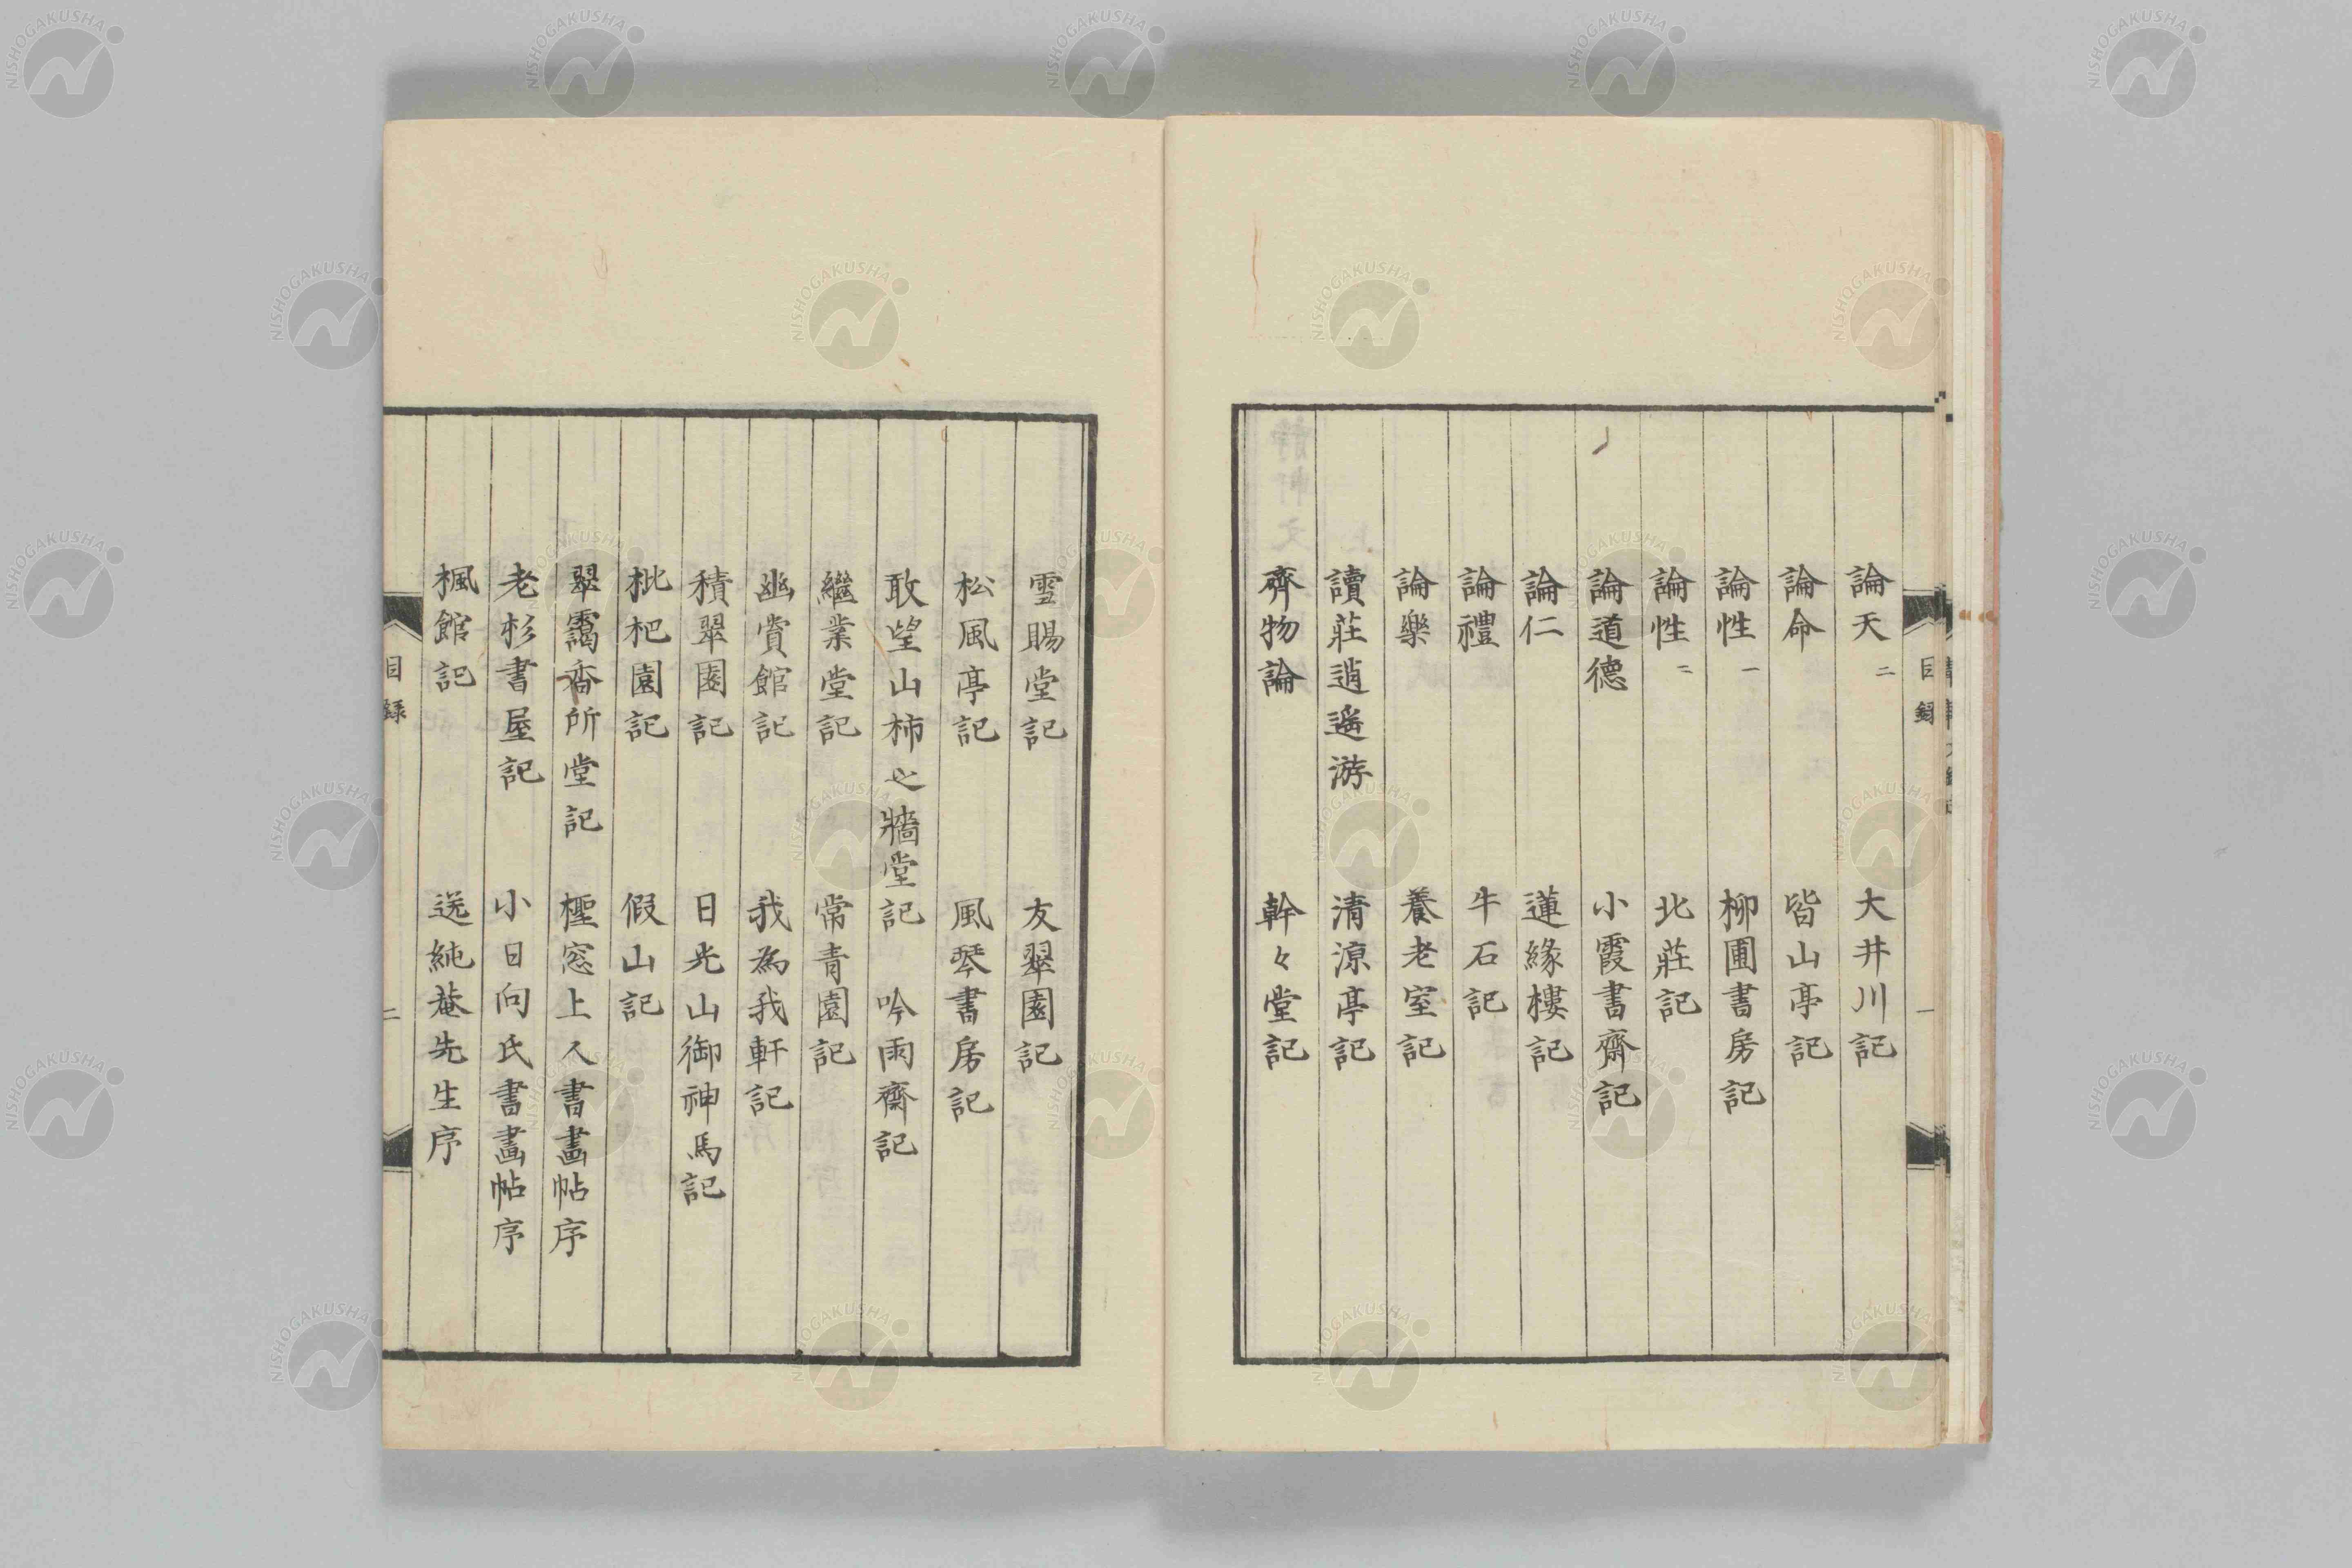 目錄
一
論天 二 大井川記
論命 皆山亭記
論性 一 柳圃書房記
論性 二 北莊記
論道德 小霞書齋記
論仁 蓮緣樓記
論禮 牛石記
論樂 養老室記
讀莊逍遙游 清涼亭記
齊物論 幹々堂記
雪賜堂記 友翠園記
松風亭記 風琴書房記
敢望山柿之牆堂記 吟雨齋記
繼業堂記 常青園記
幽賞館記 我為我軒記
積翠園記 日光山御神馬記
枇杷園記 假山記
翠靄香所堂記 檉窓上人書畫帖序
老杉書屋記 小日向氏書畫帖序
楓館記 送純菴先生序
目錄
二
NISHOGAKUSHA